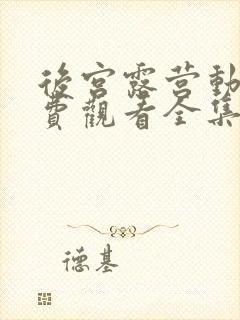 後宮露营動
費觀看全集
德基